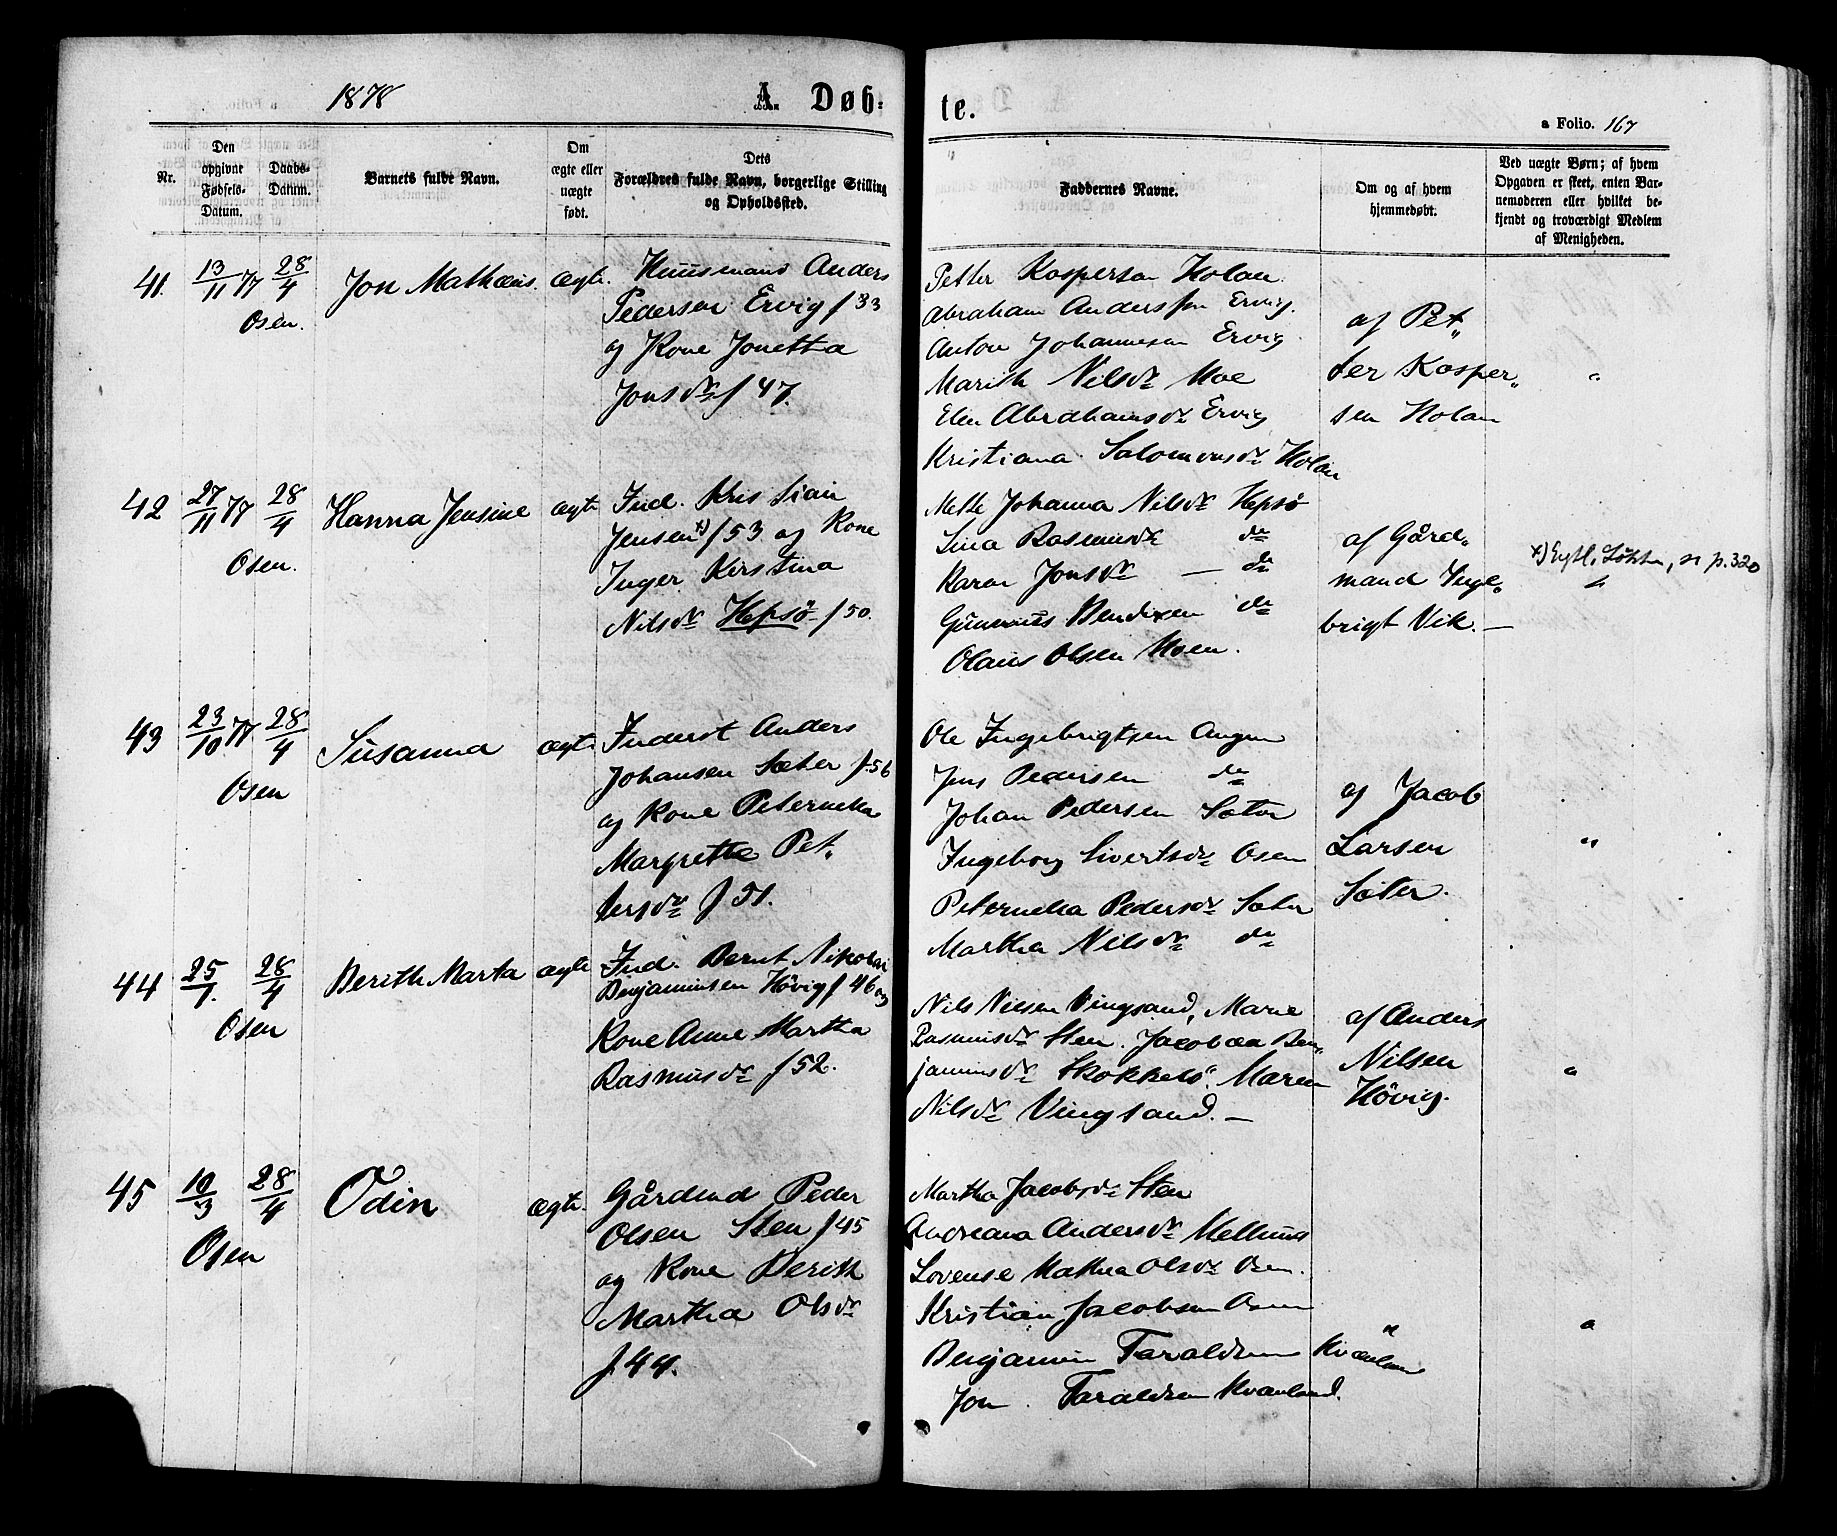 1878 A. Døb- te.
a Folio. 167
Nr.
Den opgivne Fødsels-Datum.
Daabs-Datum.
Barnets fulde Navn.
Om ægte eller uægte født.
Dets Forældres fulde Navn, borgerlige Stilling og Opholdssted.
Faddernes Navne.
Om og af hvem hjemmedøbt.
Ved uægte Børn; af hvem Opgaven er skeet, enten Barnemoderen eller hvilket bekjendt og troværdigt Medlem af Menigheden.
41. 13/11 77 28/4 Jon Mathæus. ægte.
Osen.
Huusmand Anders
Pedersen Ervig f 33
og Kone Jonetta
Jonsdr f 47.
Petter Kaspersen Holan.
Abraham Anderssen Ervig.
Anton Johannesen Ervig
Marith Nilsdr Moe
Elen Abrahamsdr Ervig
Kristiana Salomonsdr Holan
af Pet„
ter Kasper„
sen Holan
"
42 27/11 77 28/4 Hanna Jensine ægte
Osen.
Ind. Kristian
Jensen x) f 53 og Kone
Inger Kirstina
Nilsdr Hepsø f 50.
Mette Johanna Nilsdr Hepsø
Sina Rasmusdr do
Karen Jonsdr — do
Gunnerius Bendixen do
Olaus Olsen Moen.
af Gård„
mand Inge„
brigt Vik. —
x) , se p. 320
"
43 23/10 77 28/4 Susanna ægte
Osen
Inderst Anders
Johansen Sæter f. 56
og Kone Peternella
Margrethe Pet„
tersdr f 51.
Ole Ingebrigtsen Angen
Jens Pedersen do
Johan Pedersen Sæter
Ingeborg Sivertsdr Osen
Peternella Pedersdr Sæter
Martha Nilsdr do
af Jacob
Larsen
Sæter.
"
44 25/1. 28/4 Berith Marta ægte
Osen
Ind. Bernt Nikolai
Benjaminsen Høvig f 46 og
Kone Anne Martha
Rasmusdr f 52.
Nils Nilsen Vingsand, Marie
Rasmusdr Sten. Jacobæa Ben„
jaminsdr Skokkelø. Maren
Nilsdr Vingsand. —
af Anders
Nilsen
Høvig.
"
45 10/3 28/4 Odin ægte.
Osen
Gårdmd Peder
Olsen Sten f 45
og Kone Berith
Martha Olsdr
f. 44.
Martha Jacobsdr Sten
Andreana Andersdr Mellemos
Lovense Mathea Olsdr Osen.
Kristian Jacobsen Osen
Benjamin Taraldsen Kvænland
Jon Taraldsen Kvænland.
"
"